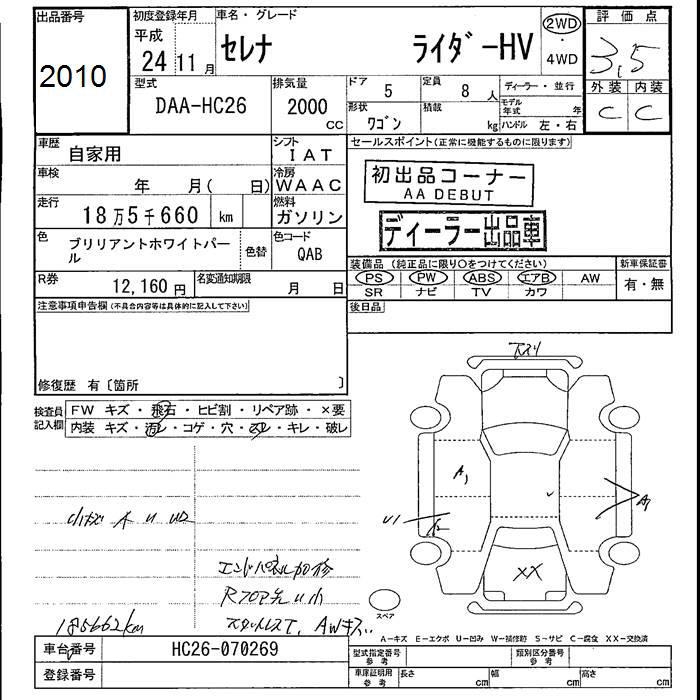 出品番号 初度登録年月 車名・グレード 評価点
2010 平成 24 11月 セレナ ライダーHV 2WD・4WD 3.5
型式 排気量 ドア 定員 ディーラー・並行 外装 内装
DAA-HC26 2000 CC 5 8人 モデル年式 年 C C
形状 積載
ワゴン kg ハンドル 左・右
車歴 シフト セールスポイント(正常に機能するものに限ります)
自家用 IAT
初出品コーナー
AA DEBUT
車検 年 月( 日) 冷房 WAAC
走行 燃料
18万5千660 km ガソリン
ディーラー出品車
色 ブリリアントホワイトパール 色替 色コード QAB
装備品(純正品に限り○をつけてください) 新車保証書
R券 12,160円 名変通知期限 月 日
PS PW ABS エアB AW 有・無
SR ナビ TV カワ
注意事項申告欄(不具合内容等は具体的に記入して下さい) 後日品
修復歴 有〔箇所 〕
検査員記入欄 FW キズ・飛石・ヒビ割・リペア跡・×要
内装 キズ・汚レ・コゲ・穴・スレ・キレ・破レ
A1
U1
XX
エンドパネル加修
185662km
スペア
A−キズ E−エクボ U−凹み W−補修跡 S−サビ C−腐食 XX−交換済
車台番号 HC26-070269 型式指定番号 参考 類別区分番号 参考
登録番号 車庫証明用 参考 長さ cm 幅 cm 高さ cm